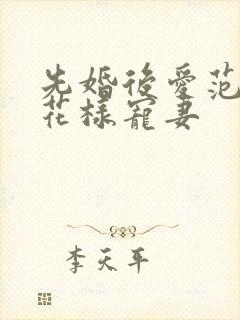 先婚後愛范
花樣寵妻
李天平